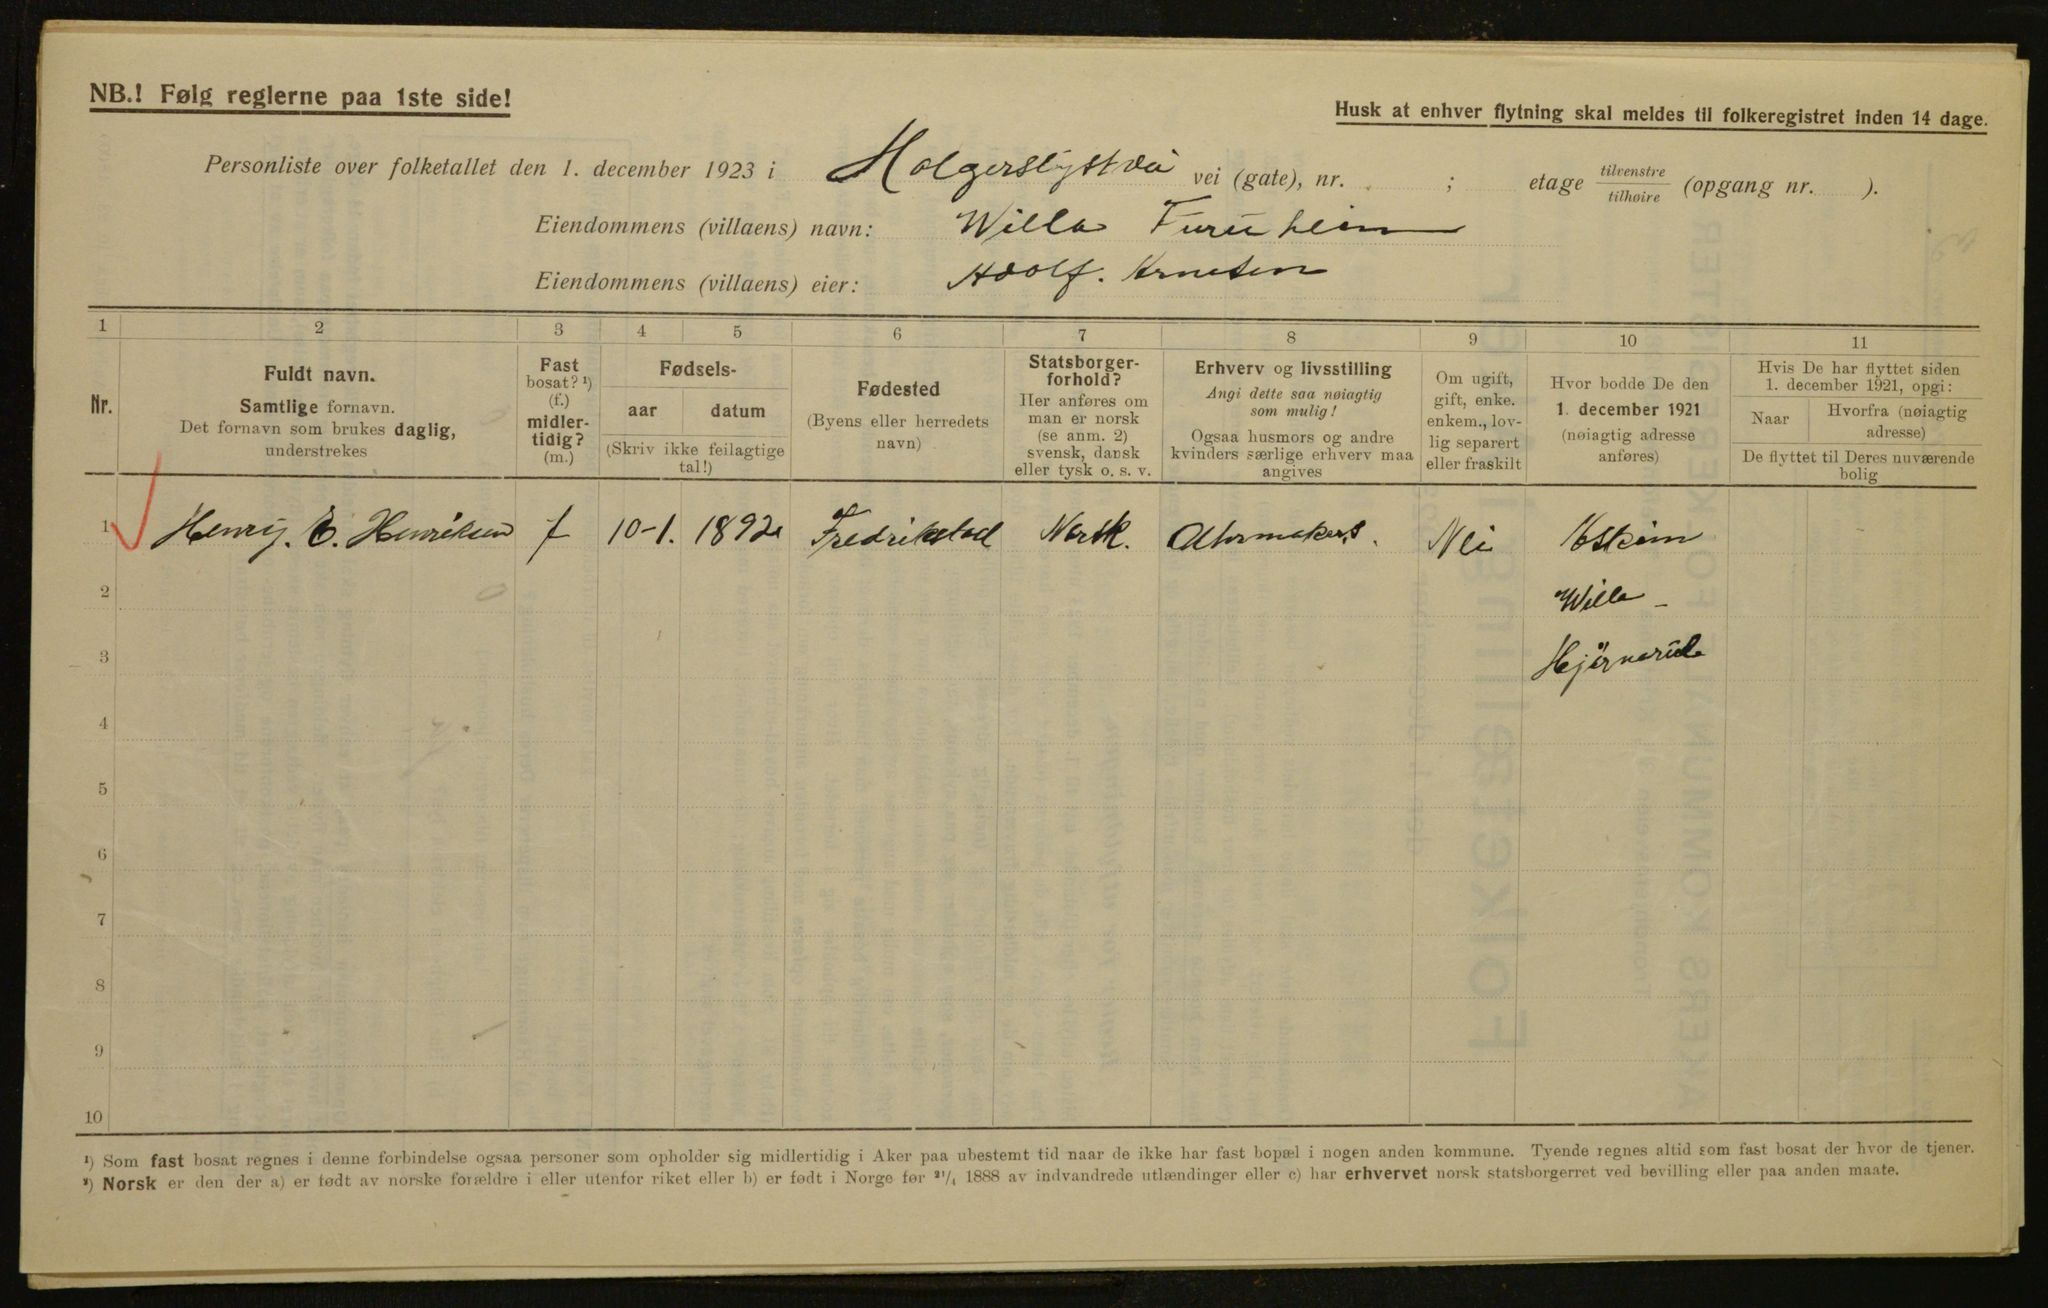 NB.! Følg reglerne paa 1ste side!
Husk at enhver flytning skal meldes til folkeregistret inden 14 dage.
Personliste over folketallet den 1. december 1923 i Holgerslystvei vei (gate), nr. ; etage tilvenstre tilhøire (opgang nr. ).
Eiendommens (villaens) navn: Willa Furuheim
Eiendommens (villaens) eier: Adolf. Arnesen
1 2 3 4 5 6 7 8 9 10 11
Nr.
Fuldt navn.
Samtlige fornavn.
Det fornavn som brukes daglig,
understrekes
Fast
bosat? ¹)
(f.)
midler-
tidig?
(m.)
Fødsels-
aar datum
(Skriv ikke feilagtige
tal!)
Fødested
(Byens eller herredets
navn)
Statsborger-
forhold?
Her anføres om
man er norsk
(se anm. 2)
svensk, dansk
eller tysk o. s. v.
Erhverv og livsstilling
Angi dette saa nøiagtig
som mulig!
Ogsaa husmors og andre
kvinders særlige erhverv maa
angives
Om ugift,
gift, enke.
enkem., lov-
lig separert
eller fraskilt
Hvor bodde De den
1. december 1921
(nøiagtig adresse
anføres)
Hvis De har flyttet siden
1. december 1921, opgi:
Naar
Hvorfra (nøiagtig
adresse)
De flyttet til Deres nuværende
bolig
1 Henry. E. Henriksen f 10-1. 1892 Fredrikstad Norsk. Uhrmakers. Nei Askim
2 Willa
3 Hjørnerud
4
5
6
7
8
9
10
¹) Som fast bosat regnes i denne forbindelse ogsaa personer som opholder sig midlertidig i Aker paa ubestemt tid naar de ikke har fast bopæl i nogen anden kommune. Tyende regnes altid som fast bosat der hvor de tjener.
²) Norsk er den der a) er født av norske forældre i eller utenfor riket eller b) er født i Norge før ²¹/₄ 1888 av indvandrede utlændinger eller c) har erhvervet norsk statsborgerret ved bevilling eller paa anden maate.